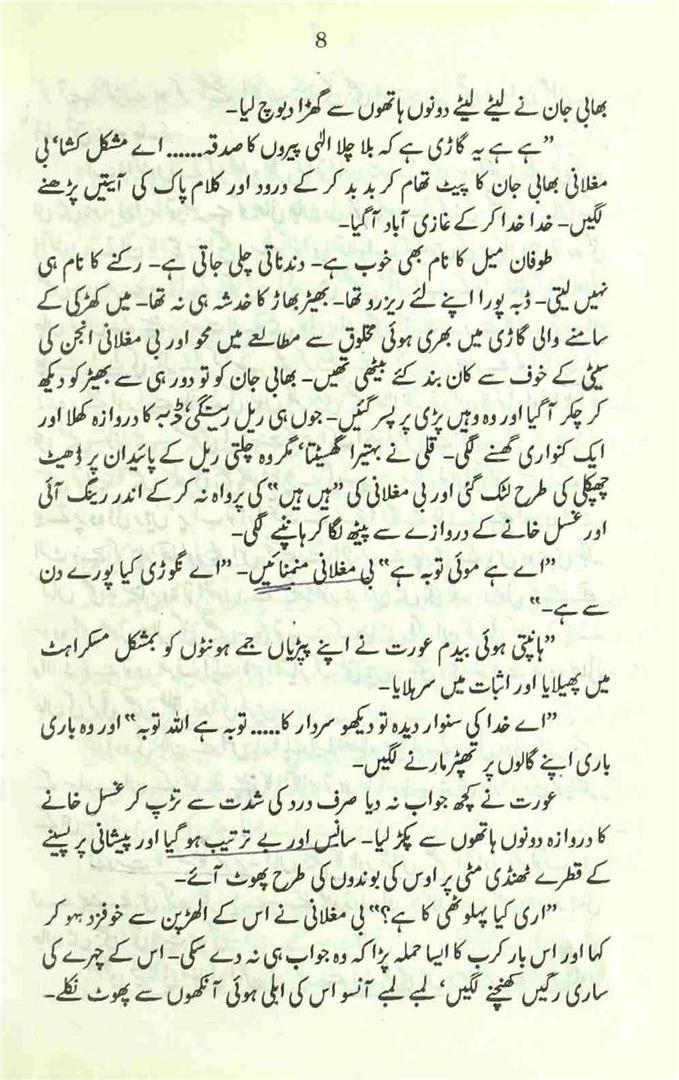 8
بھابی جان نے لیٹے لیٹے دونوں ہاتھوں سے گھڑا دبوچ لیا۔
”ہے ہے یہ گاڑی ہے کہ بلا چلا الٰہی پیروں کا صدقہ...... اے مشکل کشا‘ بی
مغلانی بھابی جان کا پیٹ تھام کر بد بد کر کے درود اور کلام پاک کی آیتیں پڑھنے
لگیں۔ خدا خدا کر کے غازی آباد آگیا۔
طوفان میل کا نام بھی خوب ہے۔ دندناتی چلی جاتی ہے۔ رکنے کا نام ہی
نہیں لیتی۔ ڈبہ پورا اپنے لئے ریزرو تھا۔ بھیڑ بھاڑ کا خدشہ ہی نہ تھا۔ میں کھڑکی کے
سامنے والی گاڑی میں بھری ہوئی مخلوق سے مطالعے میں محو اور بی مغلانی انجن کی
سیٹی کے خوف سے کان بند کئے بیٹھی تھیں۔ بھابی جان کو تو دور ہی سے بھیڑ کو دیکھ
کر چکر آگیا اور وہ وہیں پڑی پر پسر گئیں۔ جوں ہی ریل رینگی‘ ڈبہ کا دروازہ کھلا اور
ایک کنواری گھسنے لگی۔ قلی نے بہتیرا گھسیٹا‘ مگر وہ چلتی ریل کے پائیدان پر ڈھیٹ
چھپکلی کی طرح لٹک گئی اور بی مغلانی کی ”ہیں ہیں“ کی پرواہ نہ کر کے اندر رینگ آئی
اور غسل خانے کے دروازے سے پیٹھ لگا کر ہانپنے لگی۔
”اے ہے موئی توبہ ہے“ بی مغلانی منمنائیں۔ ”اے نگوڑی کیا پورے دن
سے ہے۔“
”ہانپتی ہوئی بیدم عورت نے اپنے پپڑیاں جمے ہونٹوں کو بمشکل مسکراہٹ
میں پھیلایا اور اثبات میں سر ہلایا۔
”اے خدا کی سنوار دیدہ تو دیکھو سردار کا..... توبہ ہے اللہ توبہ“ اور وہ باری
باری اپنے گالوں پر تھپڑ مارنے لگیں۔
عورت نے کچھ جواب نہ دیا صرف درد کی شدت سے تڑپ کر غسل خانے
کا دروازہ دونوں ہاتھوں سے پکڑ لیا۔ سانس اور بے ترتیب ہو گیا اور پیشانی پر پسینے
کے قطرے ٹھنڈی مٹی پر اوس کی بوندوں کی طرح پھوٹ آئے۔
”اری کیا پہلوٹھی کا ہے؟“ بی مغلانی نے اس کے الھڑپن سے خوفزد ہو کر
کہا اور اس بار کرب کا ایسا حملہ پڑا کہ وہ جواب ہی نہ دے سکی۔ اس کے چہرے کی
ساری رگیں کھنچنے لگیں‘ لمبے لمبے آنسو اس کی ابلی ہوئی آنکھوں سے پھوٹ نکلے۔